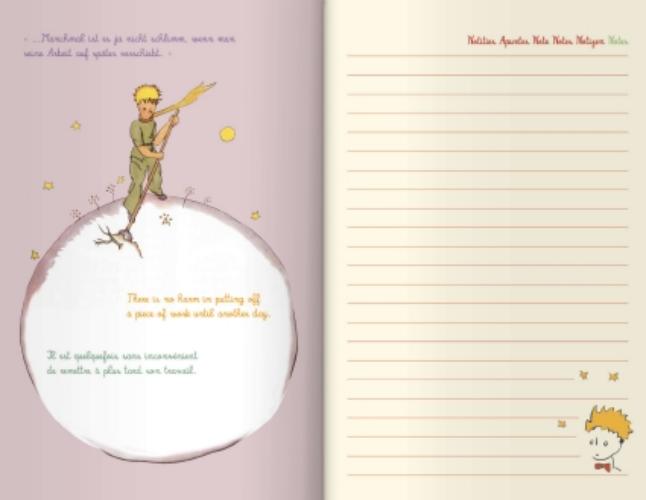 « ...Manchmal ist es ja nicht schlimm, wenn man
seine Arbeit auf später verschiebt. »
There is no harm in putting off
a piece of work until another day.
Il est quelquefois sans inconvénient
de remettre à plus tard son travail.
Notities Apuntes Note Notes Notizen Notes